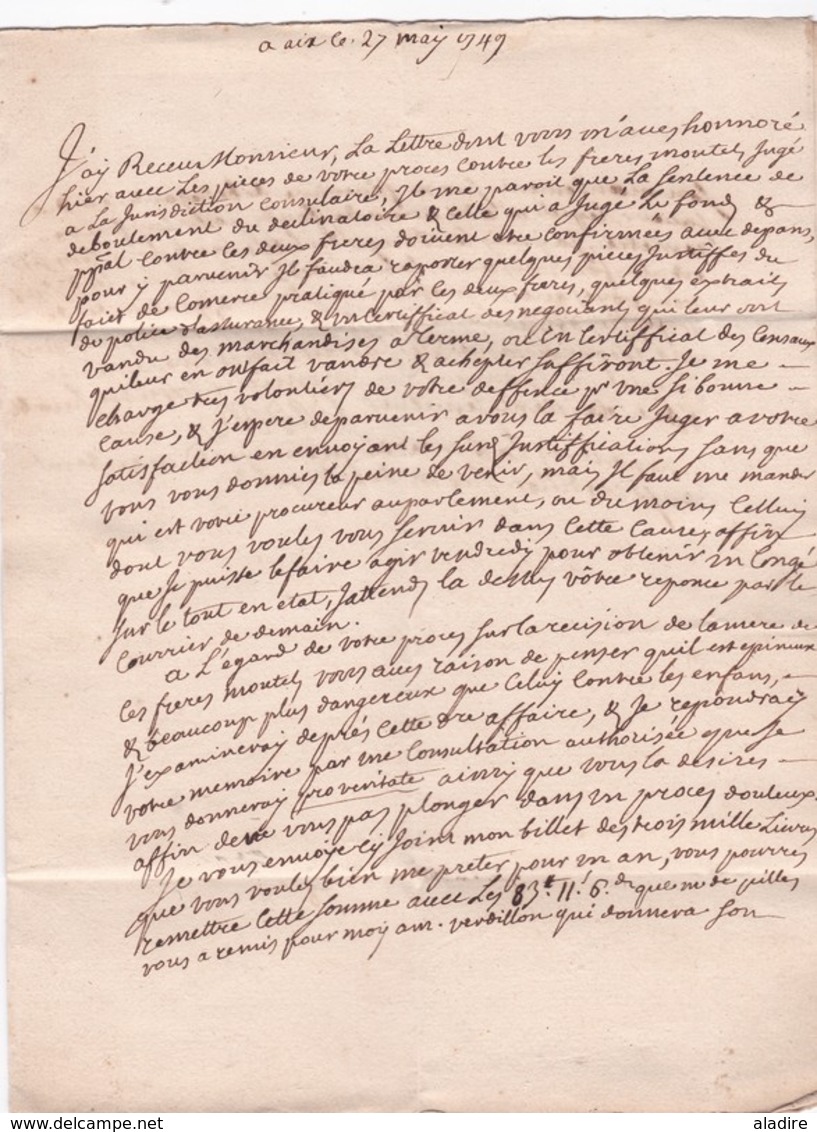 a aix le. 27 may 1749
J'ay Receu Monsieur, La Lettre dont vous m'aues honnoré
hier auec Les pieces de votre proces contre les freres moutet Jugé
a La Jurisdiction Consulaire, Jl me paroit que La Sentence de
deboutement du declinatoire & Celle qui a Jugé Le fond &
ppãl contre les deux freres doiuent etre confirmées auec depans,
pour y paruenir Jl faudra raporter quelques pieces Justiffes du
fait de Comerce pratiqué par les deux freres, quelques extraits
de police d'assurance, & un Certifficat des negotiants qui leur ont
vandu des marchandises a terme, ou un Certifficat des Censaux
qui leur en ont fait vandre & achepter suffiront. Je me -
charge tres volontiers de votre deffence pr vne si bonne -
Cause, & J'espere de paruenir a vous la faire Juger a votre
satisfaction en enuoyant les susd Justiffications sans que
vous vous donniés la peine de venir, mais Jl faut me mander
qui est votre procureur au parlement, ou du moins Celluy
dont vous voules vous seruir dans Cette Cause, affin
que Je puisse le faire agir vendredy pour obtenir un Congé
sur le tout en etat, J'attends la dessus vôtre reponce par le
Courrier de demain.
a L'égard de votre proces sur la recision de la mere de
Ces freres moutet vous aues raison de penser quil est epineux
& beaucoup plus dangereux que Celuy contre les enfans, -
J'examineray deprés Cette dre affaire, & Je repondray
votre memoire par une Consultation authorisée que Je
vous donneray pro veritate ainsy que vous la desires -
affin de ne vous pas plonger dans un proces douteux.
Je vous enuoye cy Joint mon billet des trois mille Liures
que vous voules bien me preter pour un an, vous pourres
remettre Cette somme auec Les 83.# 11.s 6.d que mr de pilles
vous a remis pour moy a mr. verdillon qui donnera son
www.delcampe.net
aladire